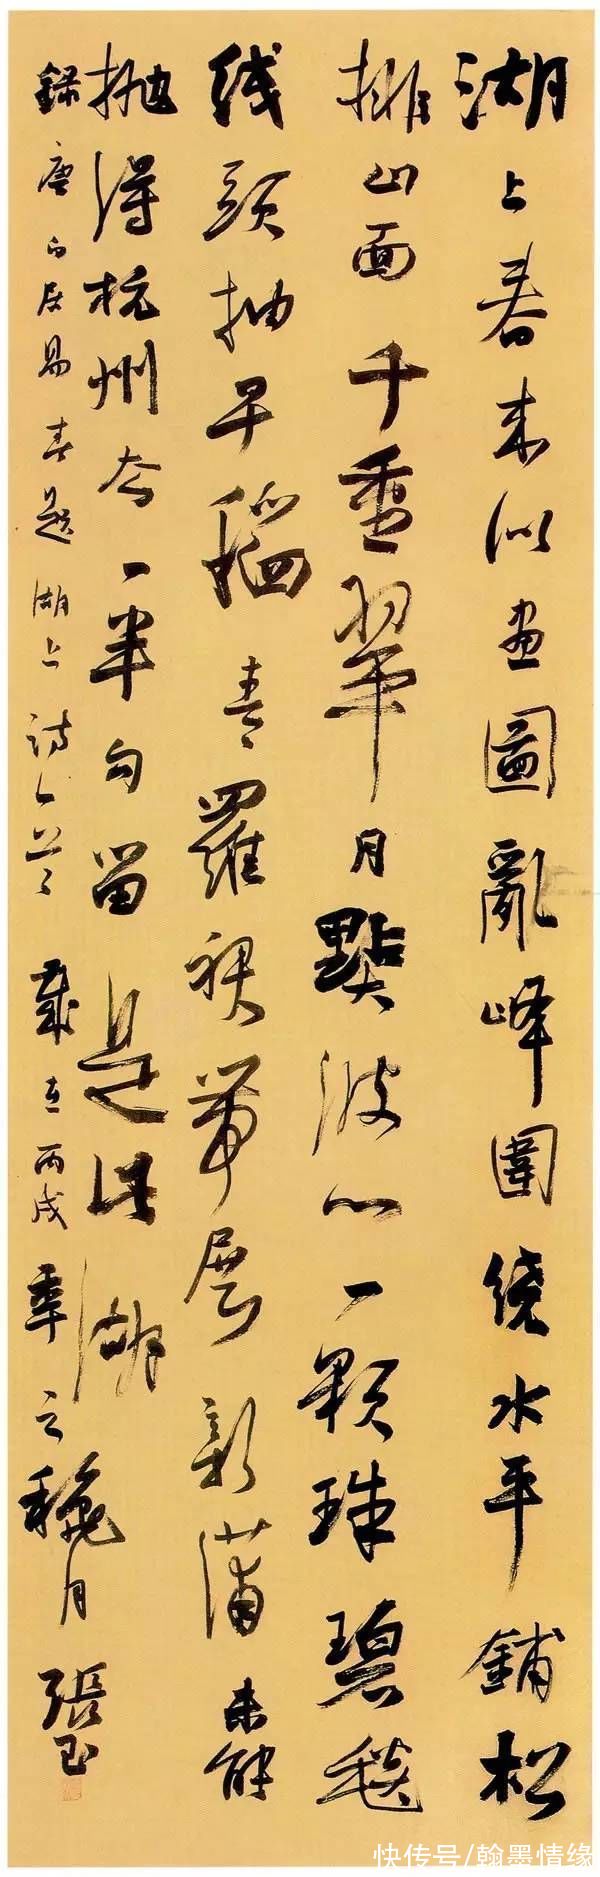 湖上春来似畫圖亂峰圍繞水平鋪松
排山面千重翠月點波心一顆珠碧毯
线頭抽早稻青羅裙帶展新蒲未能
抛得杭州去一半勾留是此湖
録唐白居易春題湖上詩歲在丙戌年之穐月張
快传号/翰墨情缘